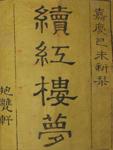 嘉慶己未新鐫
續紅樓夢
抱甕軒